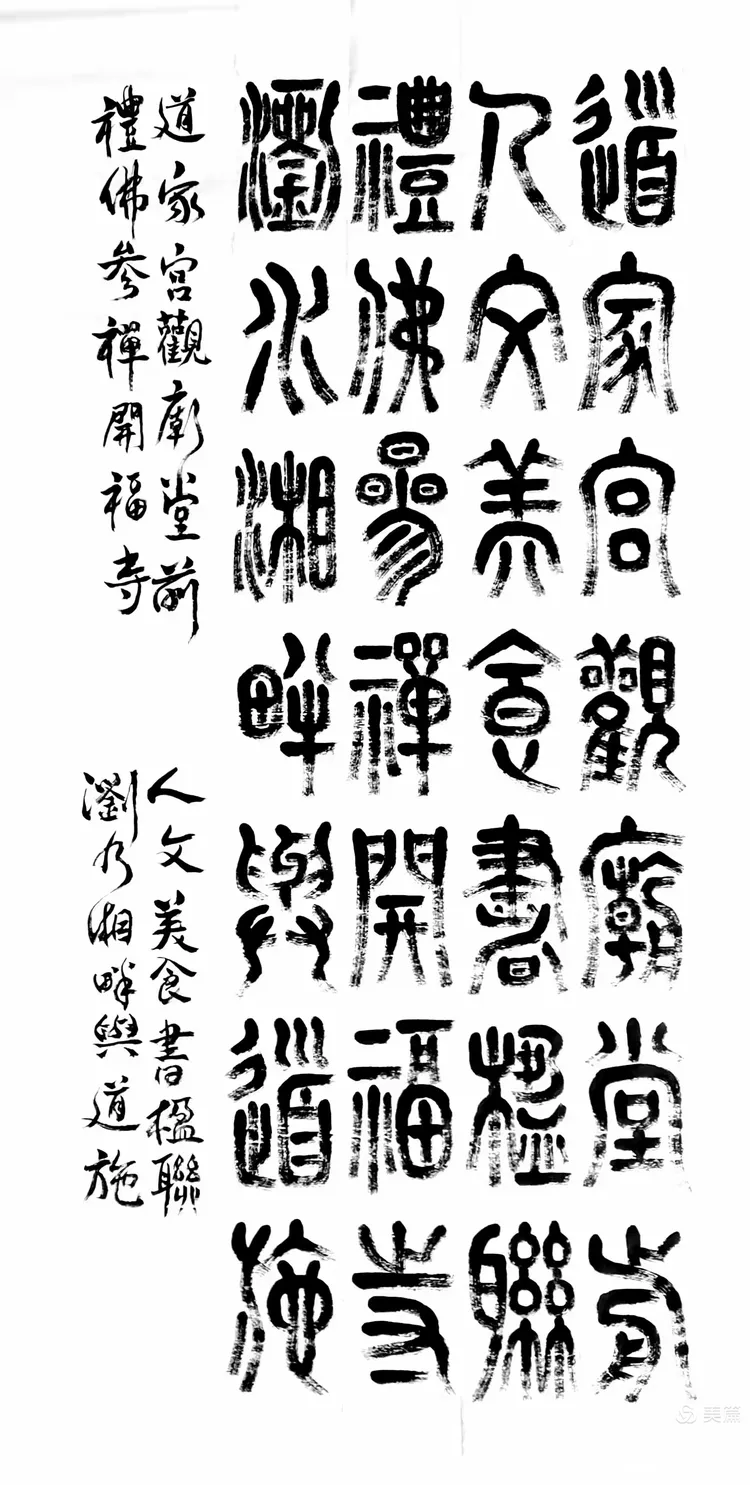 道家宮觀廟堂前
人文美食書楹聯
禮佛參禪開福寺
瀏水湘畔與道施
道家宮觀廟堂前
禮佛參禪開福寺
人文美食書楹聯
瀏水湘畔與道施
美篇